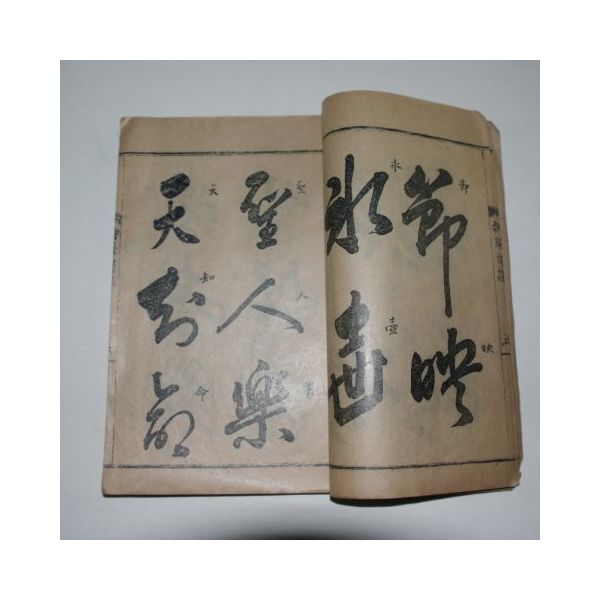 節映
氷壺
聖人樂
天知命